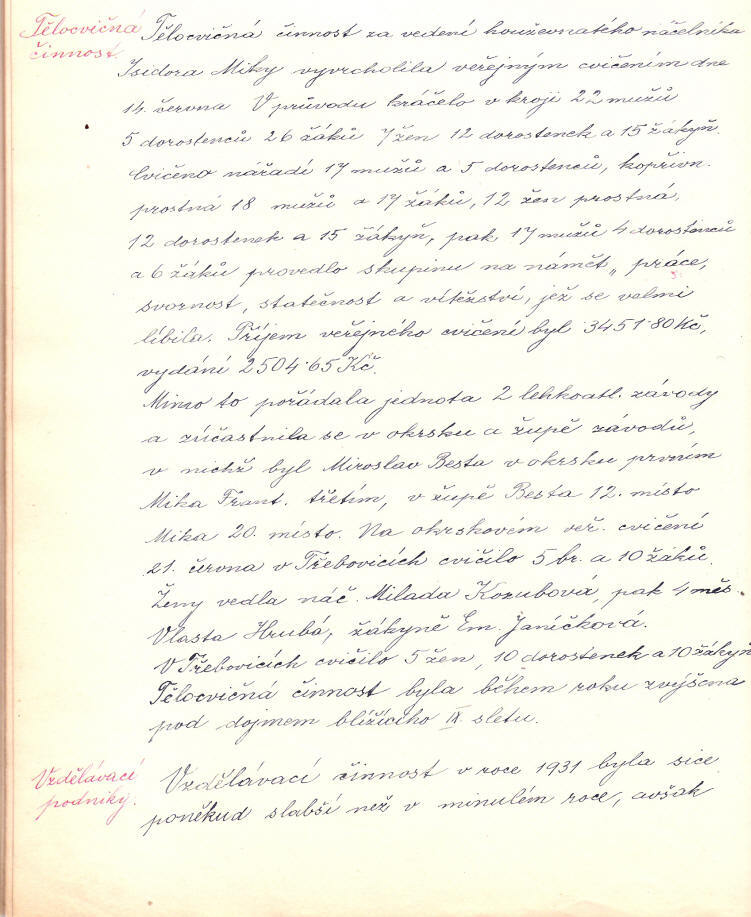 Tělocvičná
činnost.
Tělocvičná činnost za vedení houževnatého náčelníka
Isidora Miky vyvrcholila veřejným cvičením dne
14. června V průvodu kráčelo v kroji 22 mužů
5 dorostenců 26 žáků 7 žen 12 dorostenek a 15 žákyň.
Cvičeno nářadí 17 mužů a 5 dorostenců, kopřivn.
prostná 18 mužů a 17 žáků, 12 žen prostná,
12 dorostenek a 15 žákyň, pak 17 mužů 4 dorostenců
a 6 žáků provedlo skupinu na námět „práce,
svornost, statečnost a vítězství, jež se velmi
líbila. Příjem veřejného cvičení byl 3451·80 Kč,
vydání 2504·65 Kč.
Mimo to pořádala jednota 2 lehkoatl. závody
a zúčastnila se v okrsku a župě závodů,
v nichž byl Miroslav Besta v okrsku prvním
Mika Frant. třetím, v župě Besta 12. místo
Mika 20. místo. Na okrskovém veř. cvičení
21. června v Třebovicích cvičilo 5 br. a 10 žáků.
Ženy vedla náč. Milada Kozubová, pak 4 měs.
Vlasta Hrubá, žákyně Em. Janíčková.
V Třebovicích cvičilo 5 žen, 10 dorostenek a 10 žákyň
Tělocvičná činnost byla během roku zvýšena
pod dojmem blížícího IX. sletu.
Vzdělávací
podniky.
Vzdělávací činnost v roce 1931 byla sice
poněkud slabší než v minulém roce, avšak